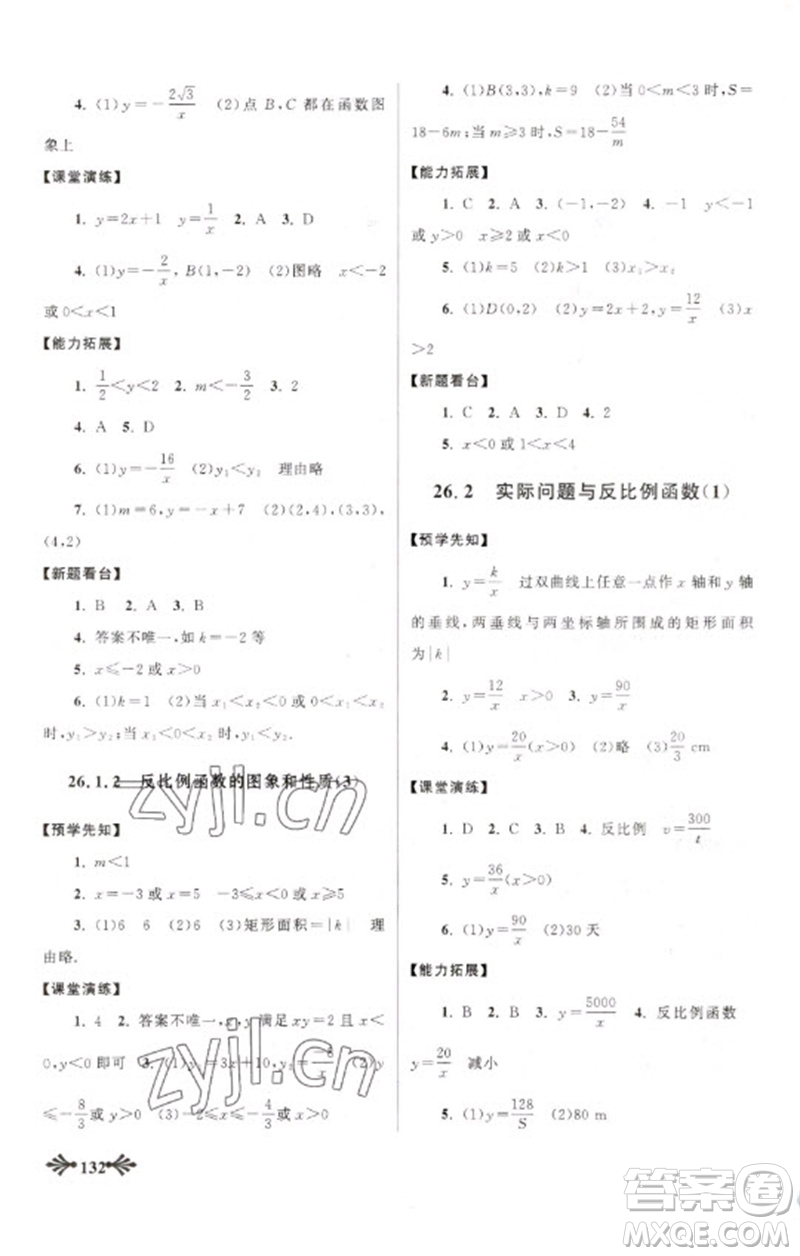 4. (1)y=-2√3/x (2)点 B,C 都在函数图
象上
【课堂演练】
1. y=2x+1 y=1/x 2. A 3. D
4. (1)y=-2/x,B(1,-2) (2)图略 x<-2
或 0<x<1
【能力拓展】
1. 1/2<y<2 2. m<-3/2 3. 2
4. A 5. D
6. (1)y=-16/x (2)y₁<y₂ 理由略
7. (1)m=6,y=-x+7 (2)(2,4),(3,3),
(4,2)
【新题看台】
1. B 2. A 3. B
4. 答案不唯一,如 k=-2 等
5. x≤-2 或 x>0
6. (1)k=1 (2)当 x₁<x₂<0 或 0<x₁<x₂
时,y₁>y₂;当 x₁<0<x₂ 时,y₁<y₂.
26.1.2 反比例函数的图象和性质(3)
【预学先知】
1. m<1
2. x=-3 或 x=5 -3≤x<0 或 x≥5
3. (1)6 6 (2)6 (3)矩形面积=|k| 理
由略.
【课堂演练】
1. 4 2. 答案不唯一,x,y 满足 xy=2 且 x<
0,y<0 即可 3. (1)y=3x+10,y=-8/x (2)y
≤-8/3 或 y>0 (3)-2≤x≤-4/3 或 x>0
132
4. (1)B(3,3),k=9 (2)当 0<m<3 时,S=
18-6m;当 m≥3 时,S=18-54/m
【能力拓展】
1. C 2. A 3. (-1,-2) 4. -1 y<-1
或 y>0 x≥2 或 x<0
5. (1)k=5 (2)k>1 (3)x₁>x₂
6. (1)D(0,2) (2)y=2x+2,y=12/x (3)x
>2
【新题看台】
1. C 2. A 3. D 4. 2
5. x<0 或 1<x<4
26.2 实际问题与反比例函数(1)
【预学先知】
1. y=k/x 过双曲线上任意一点作 x 轴和 y 轴
的垂线,两垂线与两坐标轴所围成的矩形面积
为|k|
2. y=12/x x>0 3. y=90/x
4. (1)y=20/x (2)略 (3)20/3 cm
【课堂演练】
1. D 2. C 3. A 4. 反比例 v=300/t
5. y=36/x(x>0)
6. (1)y=90/x (2)30 天
【能力拓展】
1. B 2. B 3. y=5000/x 4. 反比例函数
y=20/x 减小
5. (1)y=128/S (2)80 m
zyjl.cn
zyjl.cn
答案圈
MXQE.COM